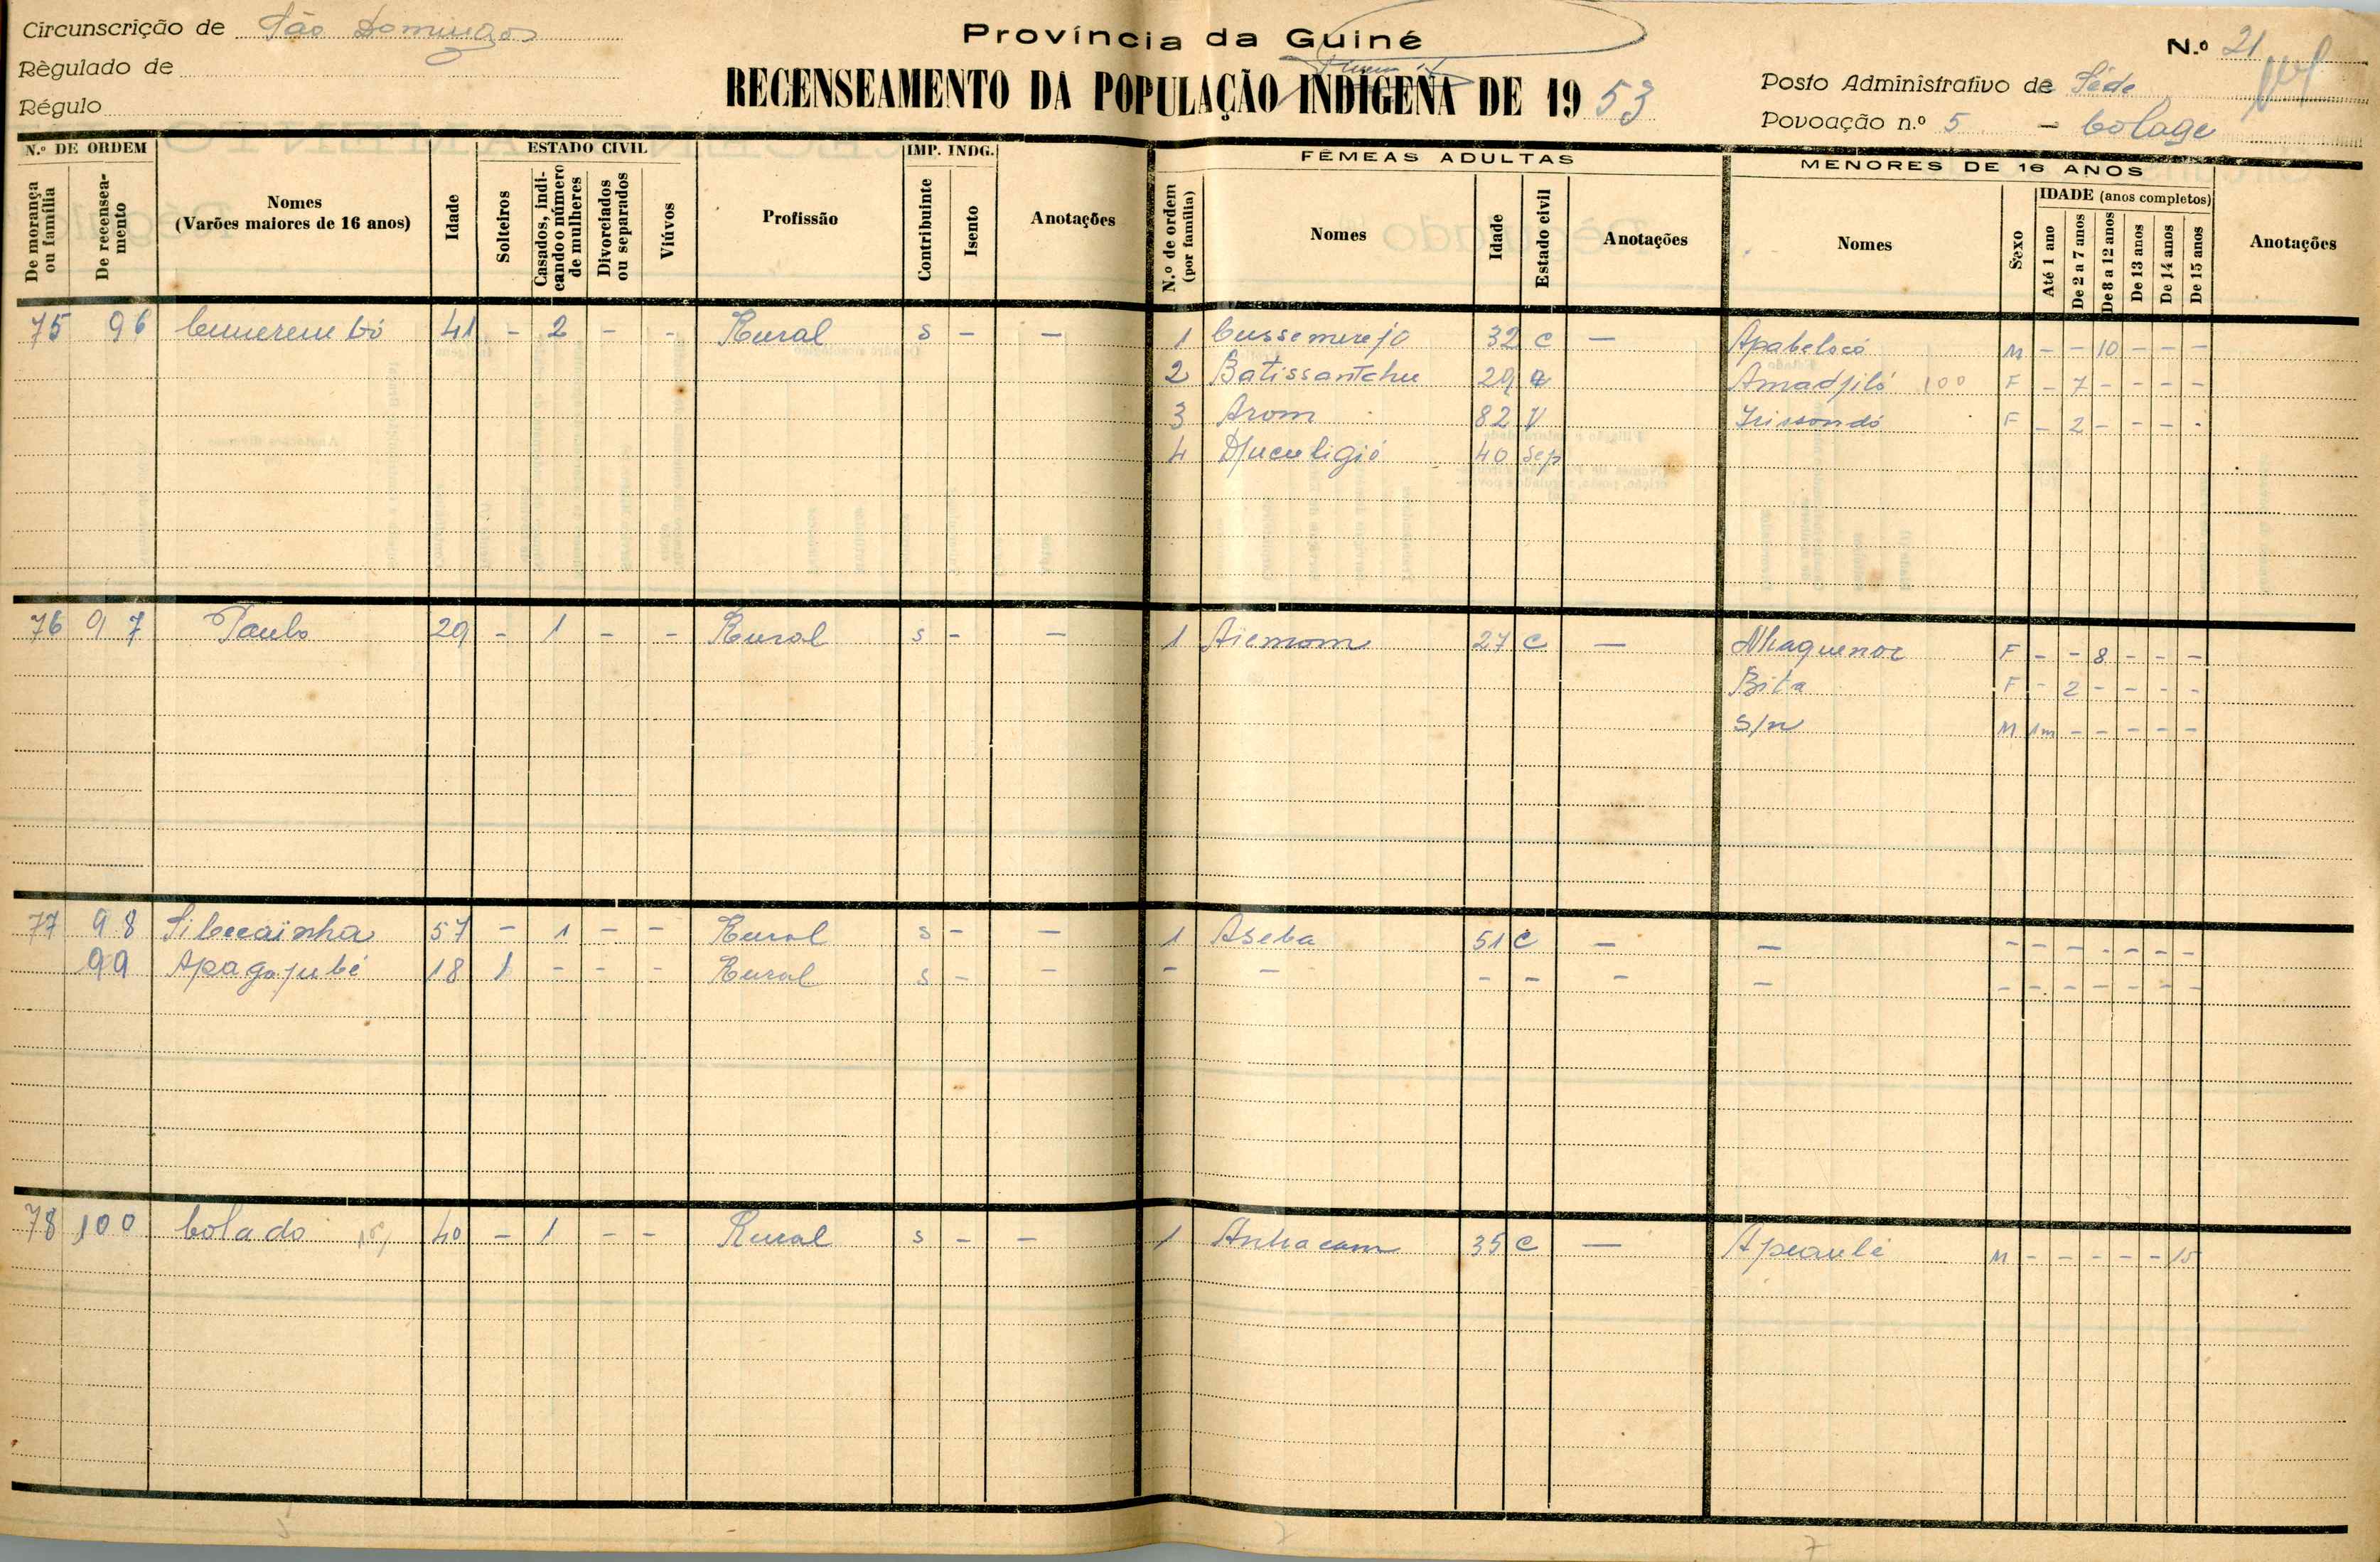 Circunscrição de São Domingos
Règulado de
Régulo
Província da Guiné
RECENSEAMENTO DA POPULAÇÃO INDÍGENA DE 1953
N.º 21
Posto Administrativo de Séde
Povoação n.º 5 - Colage
N.º DE ORDEM
De morança ou família
De recenseamento
Nomes
(Varões maiores de 16 anos)
Idade
ESTADO CIVIL
Solteiros
Casados, indicando o número de mulheres
Divorciados ou separados
Viúvos
Profissão
IMP. INDG.
Contribuinte
Isento
Anotações
FÊMEAS ADULTAS
N.º de ordem (por família)
Nomes
Idade
Estado civil
Anotações
MENORES DE 16 ANOS
Nomes
Sexo
IDADE (anos completos)
Até 1 ano
De 2 a 7 anos
De 8 a 12 anos
De 13 anos
De 14 anos
De 15 anos
Anotações
75 96 41 - 2 - - Rural s - - 1 Cussemerejo 32 C - Apabelocó M - - 10 - - -
2 Batissantchu 29 C Amadjiló 100 F - 7 - - - -
3 Arom 82 V F - 2 - - - -
4 Djuculigié 40 Sep
76 97 Paulo 29 - 1 - - Rural s - - 1 Aiemom 27 C - Nhaquenor F - - 8 - - -
Bita F - 2 - - - -
S/n M 1m - - - - -
77 98 57 - 1 - - Rural s - - 1 Aseba 51 C - - - - - - - - -
99 Apagajubé 18 1 - - - Rural s - - - - - - - - - - - - - - -
78 100 Colado 40 - 1 - - Rural s - - 1 Anhacam 35 C - Apeaulé M - - - - - 15